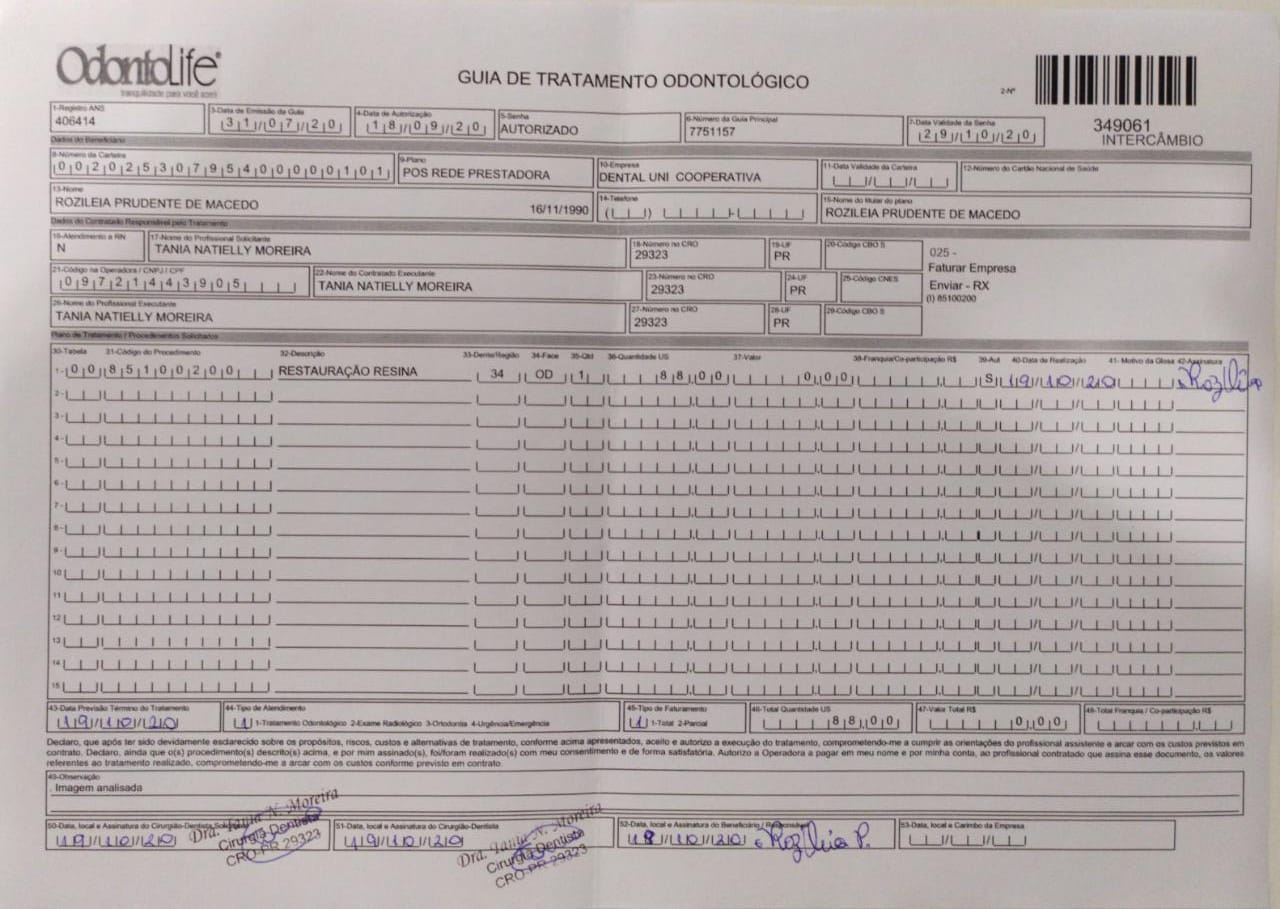 OdontoLife®
tranquilidade para você sorrir
GUIA DE TRATAMENTO ODONTOLÓGICO
2-Nº
349061
INTERCÂMBIO
1-Registro ANS
406414
3-Data de Emissão da Guia
31/07/20
4-Data de Autorização
18/09/20
5-Senha
AUTORIZADO
6-Número da Guia Principal
7751157
7-Data Validade da Senha
29/10/20
Dados do Beneficiário
8-Número da Carteira
00202530795400000101
9-Plano
POS REDE PRESTADORA
10-Empresa
DENTAL UNI COOPERATIVA
11-Data Validade da Carteira
12-Número do Cartão Nacional de Saúde
13-Nome
ROZILEIA PRUDENTE DE MACEDO 16/11/1990
14-Telefone
15-Nome do titular do plano
ROZILEIA PRUDENTE DE MACEDO
Dados do Contratado Responsável pelo Tratamento
16-Atendimento a RN
N
17-Nome do Profissional Solicitante
TANIA NATIELLY MOREIRA
18-Número no CRO
29323
19-UF
PR
20-Código CBO S
025 -
Faturar Empresa
Enviar - RX
(I) 85100200
21-Código na Operadora / CNPJ / CPF
09721443905
22-Nome do Contratado Executante
TANIA NATIELLY MOREIRA
23-Número no CRO
29323
24-UF
PR
25-Código CNES
26-Nome do Profissional Executante
TANIA NATIELLY MOREIRA
27-Número no CRO
29323
28-UF
PR
29-Código CBO S
Plano de Tratamento / Procedimentos Solicitados
30-Tabela 31-Código do Procedimento 32-Descrição 33-Dente/Região 34-Face 35-Qtd 36-Quantidade US 37-Valor 38-Franquia/Co-participação R$ 39-Aut 40-Data de Realização 41- Motivo da Glosa 42-Assinatura
1- 00 85100200 RESTAURAÇÃO RESINA 34 OD 1 88,00 0,00 S 19/10/20
2-
3-
4-
5-
6-
7-
8-
9-
10
11
12
13
14
15
43-Data Previsão Término do Tratamento
19/10/20
44-Tipo de Atendimento
1 1-Tratamento Odontológico 2-Exame Radiológico 3-Ortodontia 4-Urgência/Emergência
45-Tipo de Faturamento
1 1-Total 2-Parcial
46-Total Quantidade US
88,00
47-Valor Total R$
0,00
48-Total Franquia / Co-participação R$
Declaro, que após ter sido devidamente esclarecido sobre os propósitos, riscos, custos e alternativas de tratamento, conforme acima apresentados, aceito e autorizo a execução do tratamento, comprometendo-me a cumprir as orientações do profissional assistente e arcar com os custos previstos em
contrato. Declaro, ainda que o(s) procedimento(s) descrito(s) acima, e por mim assinado(s), foi/foram realizado(s) com meu consentimento e de forma satisfatória. Autorizo a Operadora a pagar em meu nome e por minha conta, ao profissional contratado que assina esse documento, os valores
referentes ao tratamento realizado, comprometendo-me a arcar com os custos conforme previsto em contrato.
49-Observação
Imagem analisada
50-Data, local e Assinatura do Cirurgião-Dentista
19/10/20
Dra. Tania N. Moreira
Cirurgiã Dentista
CRO-PR 29323
51-Data, local e Assinatura do Cirurgião-Dentista
19/10/20
Dra. Tania N. Moreira
Cirurgiã Dentista
CRO-PR 29323
52-Data, local e Assinatura do Beneficiário / Responsável
19/10/20 Rozileia P.
53-Data, local e Carimbo da Empresa